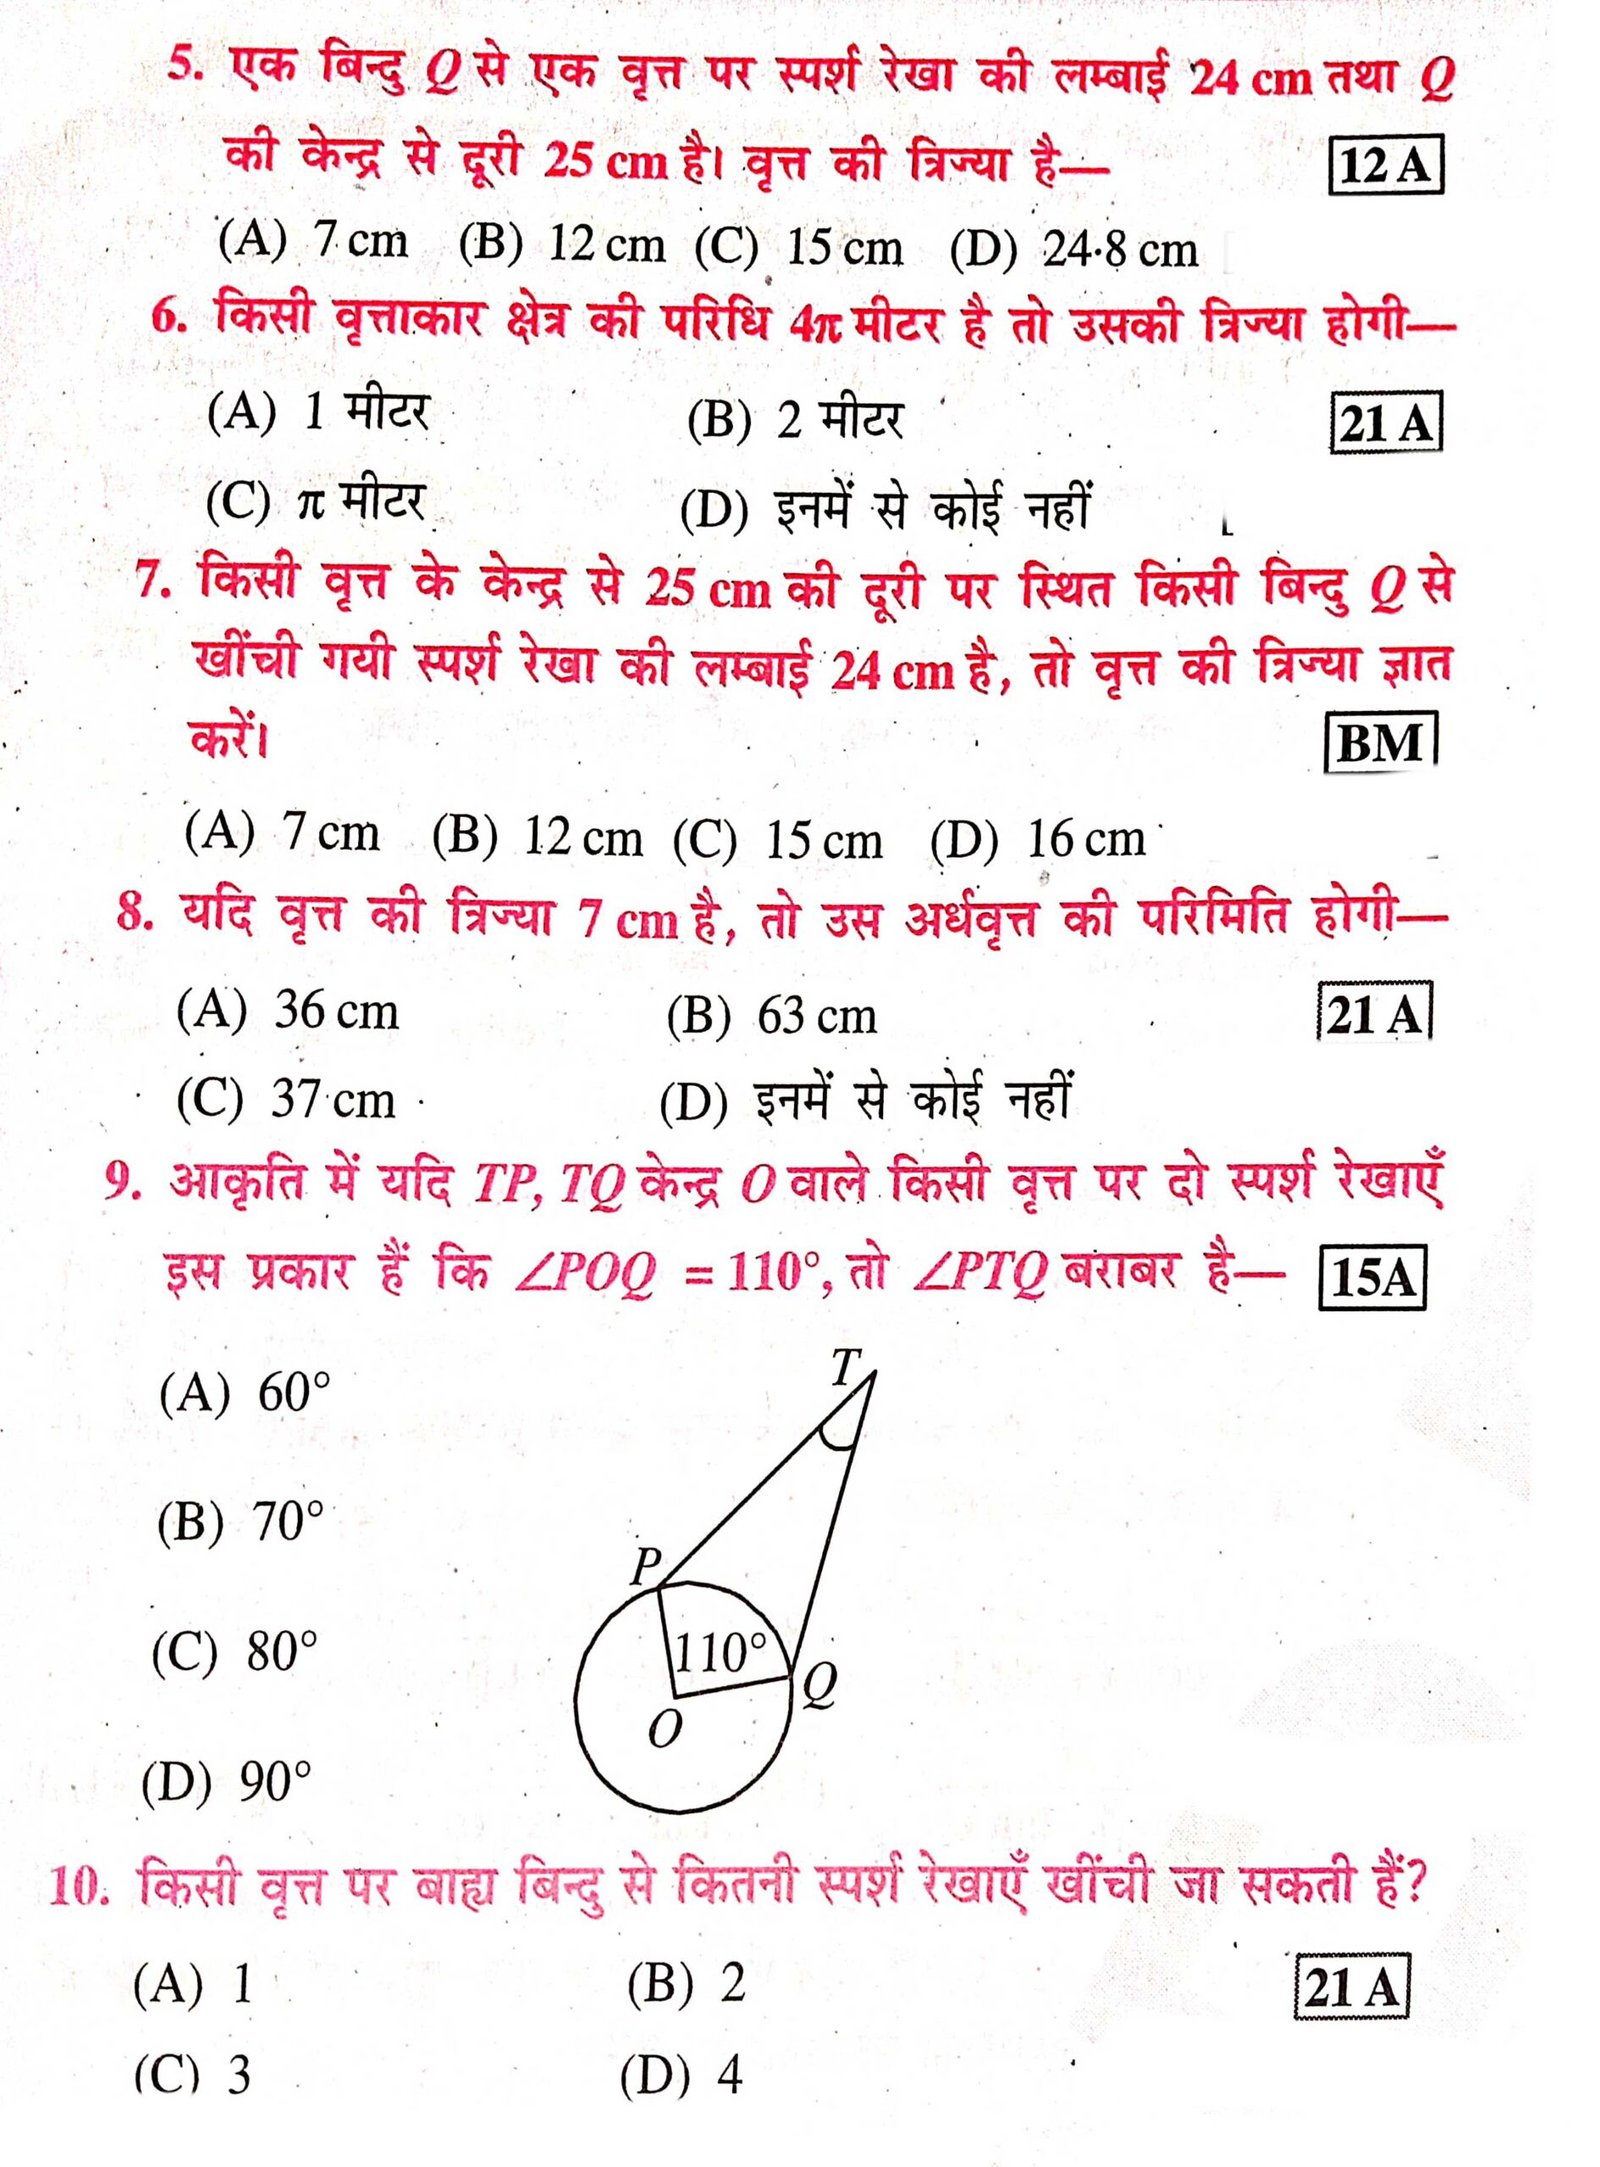 5. एक बिन्दु Q से एक वृत्त पर स्पर्श रेखा की लम्बाई 24 cm तथा Q
की केन्द्र से दूरी 25 cm है। वृत्त की त्रिज्या है— 12 A
(A) 7 cm (B) 12 cm (C) 15 cm (D) 24·8 cm
6. किसी वृत्ताकार क्षेत्र की परिधि 4π मीटर है तो उसकी त्रिज्या होगी—
(A) 1 मीटर (B) 2 मीटर 21 A
(C) π मीटर (D) इनमें से कोई नहीं
7. किसी वृत्त के केन्द्र से 25 cm की दूरी पर स्थित किसी बिन्दु Q से
खींची गयी स्पर्श रेखा की लम्बाई 24 cm है, तो वृत्त की त्रिज्या ज्ञात
करें। BM
(A) 7 cm (B) 12 cm (C) 15 cm (D) 16 cm
8. यदि वृत्त की त्रिज्या 7 cm है, तो उस अर्धवृत्त की परिमिति होगी—
(A) 36 cm (B) 63 cm 21 A
(C) 37 cm (D) इनमें से कोई नहीं
9. आकृति में यदि TP, TQ केन्द्र O वाले किसी वृत्त पर दो स्पर्श रेखाएँ
इस प्रकार हैं कि ∠POQ = 110°, तो ∠PTQ बराबर है— 15A
T
(A) 60°
(B) 70°
P
(C) 80°
110°
Q
O
(D) 90°
10. किसी वृत्त पर बाह्य बिन्दु से कितनी स्पर्श रेखाएँ खींची जा सकती हैं?
(A) 1 (B) 2 21 A
(C) 3 (D) 4